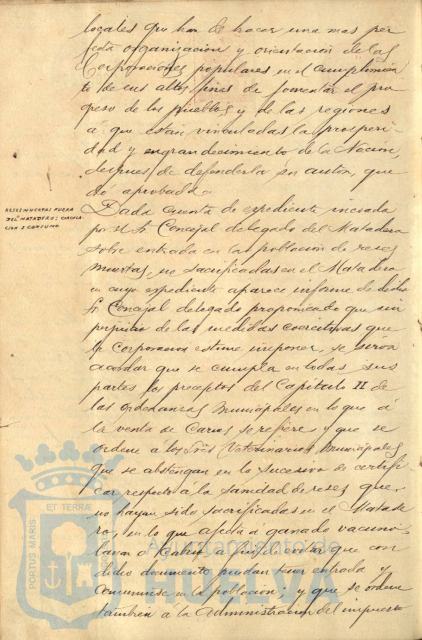 locales que han de hacer una mas per
fecta organizacion y orientacion de las
Corporaciones populares en el cumplimien
to de sus altos fines de fomentar el pro
greso de los pueblos y de las regiones
á que estan vinculadas la prosperi-
dad y engrandecimiento de la Nacion,
despues de defenderla su autor, que
dó aprobada.
RESES MUERTAS FUERA
DEL MATADERO: CIRCULA-
CION Y CONSUMO
Dada cuenta de expediente iniciado
por el Sr Concejal delegado del Matadero
sobre entrada en la poblacion de reses
muertas, no sacrificadas en el Matadero
en cuyo expediente aparece informe de dicho
Sr Concejal delegado proponiendo que sin
perjuicio de las medidas coercitivas que
la Corporacion estime imponer, se sirva
acordar que se cumpla en todas sus
partes los preceptos del Capitulo II de
las ordenanzas Municipales en lo que á
la venta de Carnes se refiere y que se
ordene á los Sres Veterinarios Municipales,
que se abstengan en lo sucesivo de certifi
car respecto á la sanidad de reses que
no hayan sido sacrificadas en el Matade
ro, en lo que afecta á ganado vacuno
lanar ó cabrio á fin de evitar que con
dicho documento puedan tener entrada y
consumirse en la poblacion; y que se ordene
tambien á la Administracion del impuesto
PORTUS MARIS
ET TERRAE
Ayuntamiento de
HUELVA